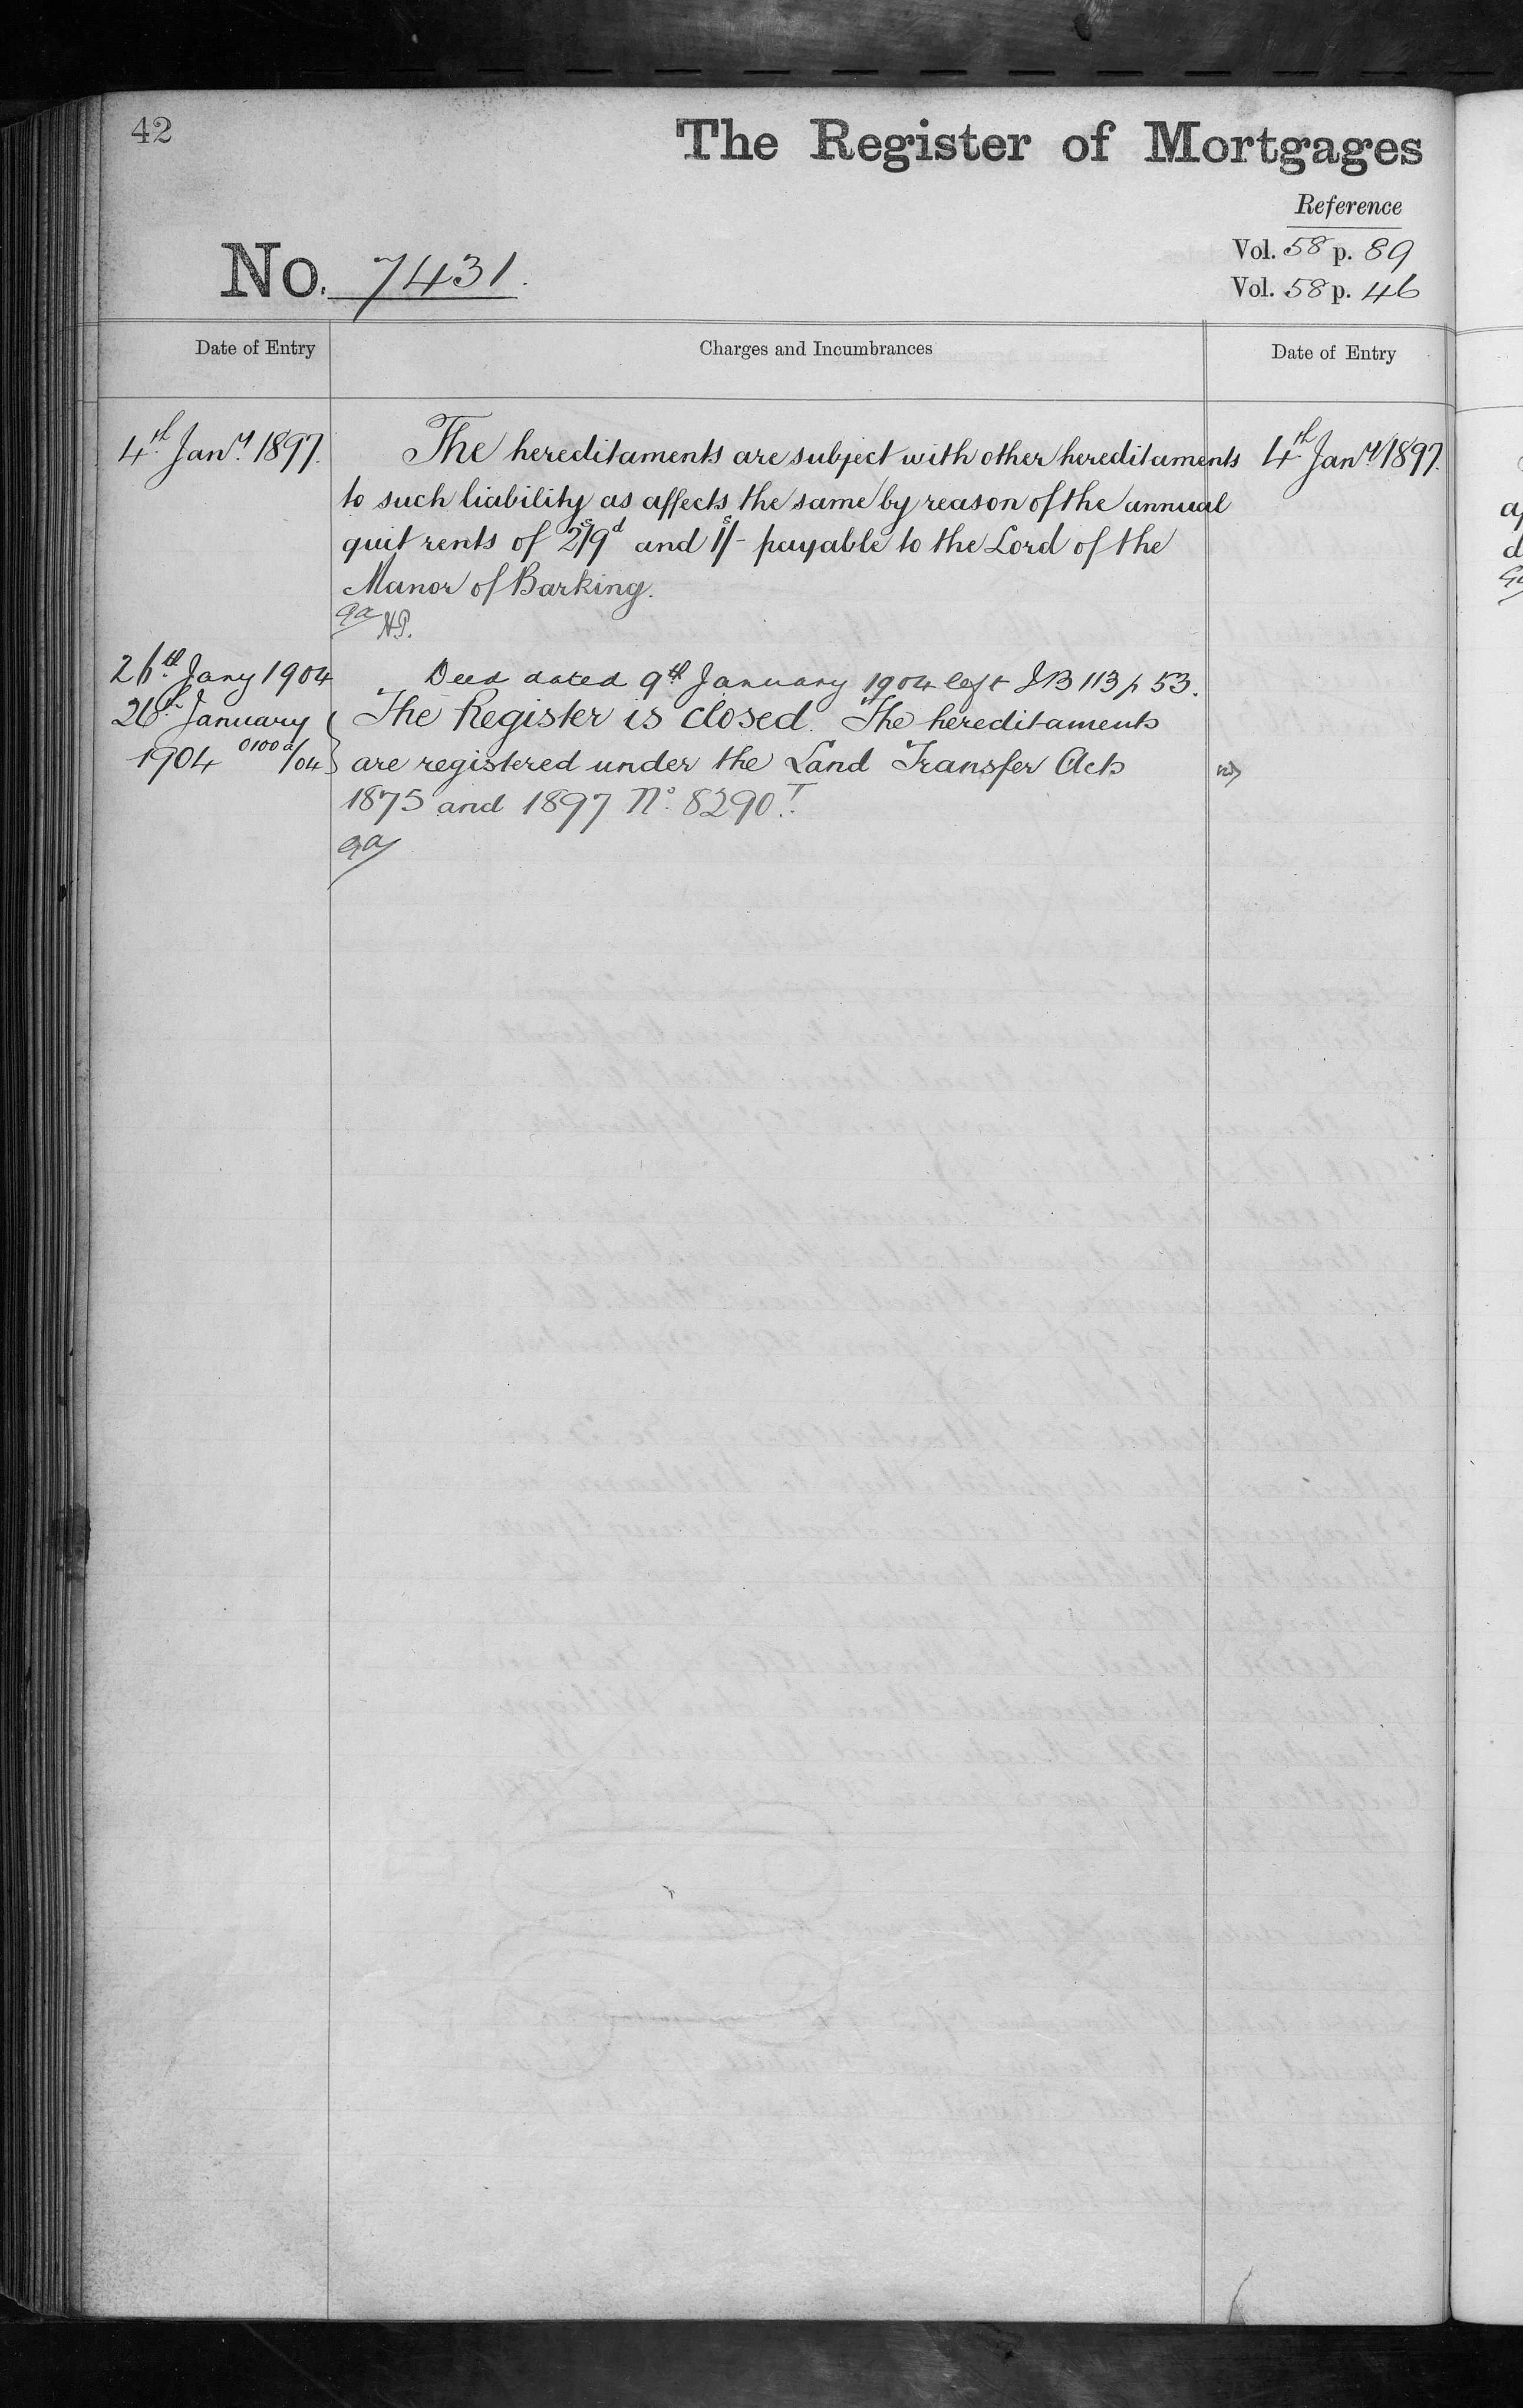 42
The Register of Mortgages
Reference
Vol. 58 p. 89
No. 7431.
Vol. 58 p. 46
Date of Entry
Charges and Incumbrances
Date of Entry
4th Jany 1897.
The hereditaments are subject with other hereditaments
4th Jany 1897.
to such liability as affects the same by reason of the annual
quit rents of 2s/9d and 1s/- payable to the Lord of the
Manor of Barking.
ga HP.
26th Jany 1904
Deed dated 9th January 1904 left JB 113 p 53.
26th January
The Register is closed. The hereditaments
1904 0100a/04
are registered under the Land Transfer Acts
1875 and 1897 No. 8290T.
ga